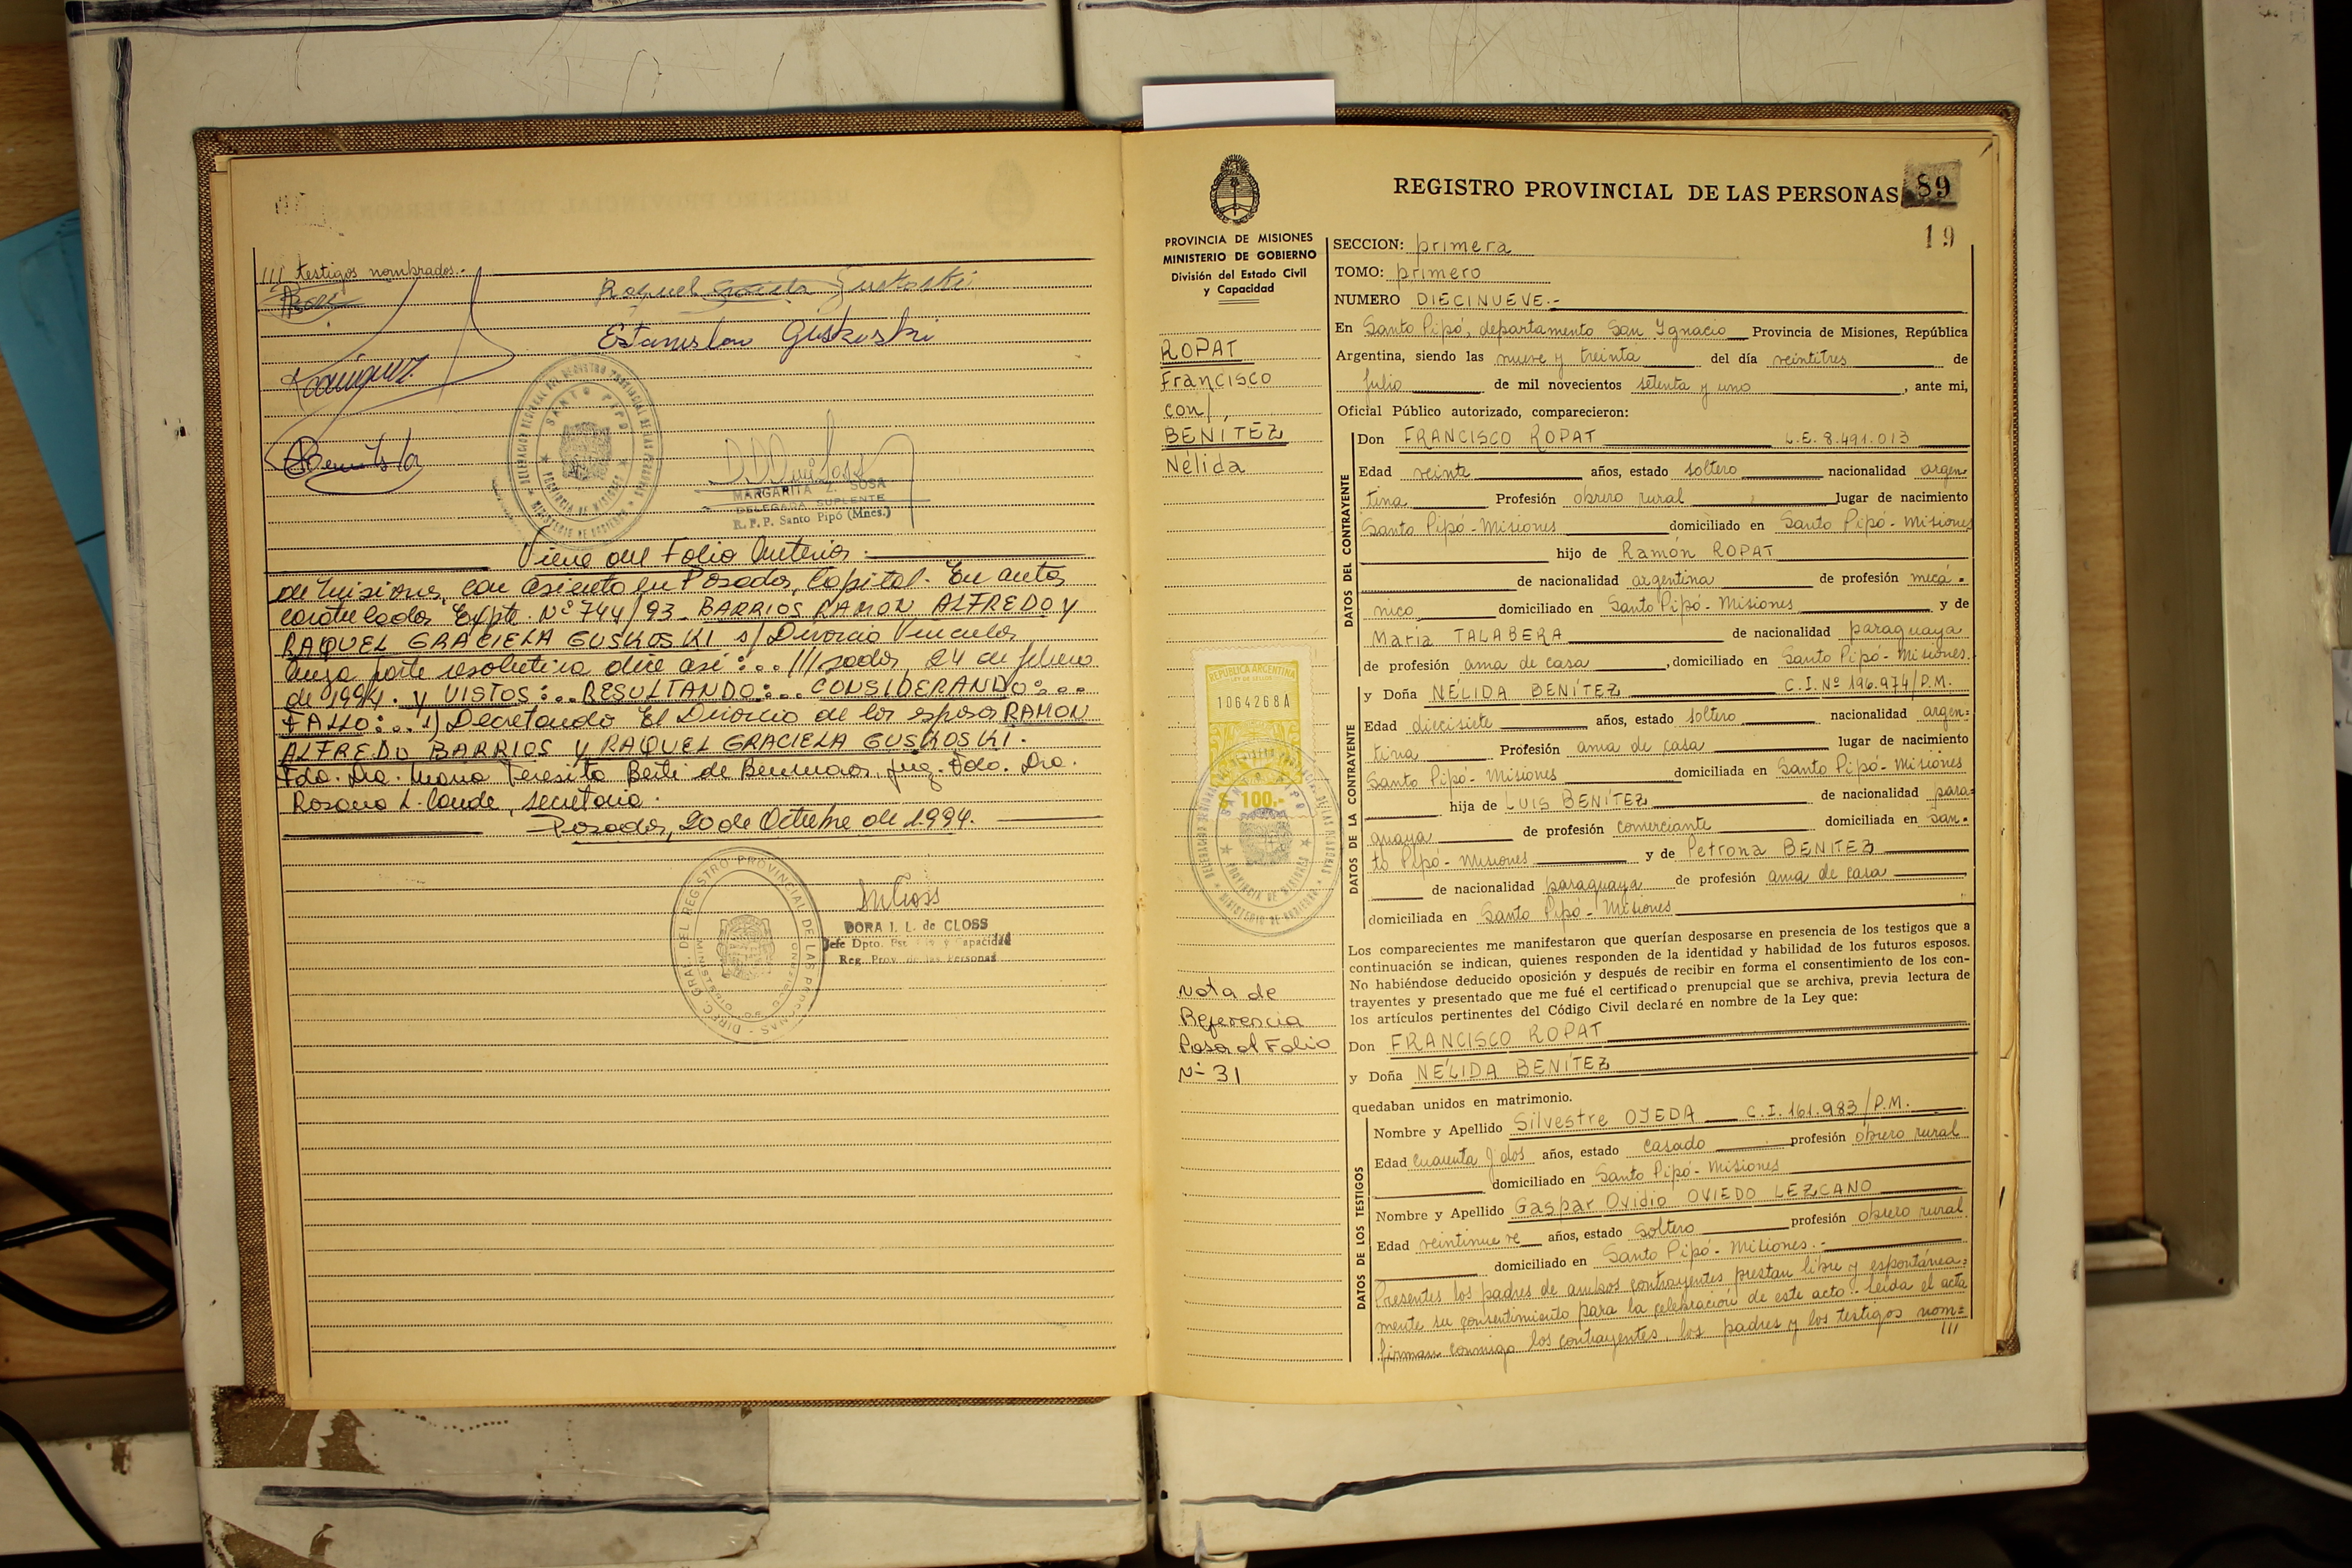 /// testigos nombrados.-
Raquel Guskoski
Estanislao Guskoski
Rodriguez
DELEGACION REGIONAL DEL REGISTRO PROVINCIAL DE LAS PERSONAS
SANTO PIPO
PROVINCIA DE MISIONES
MINISTERIO DE GOBIERNO
MARGARITA Z. SOSA
DELEGADA SUPLENTE
R. P. P. Santo Pipó (Mnes.)
Viene del Folio Anterior.
de Misiones, con asiento en Posadas, Capital. En autos
caratulados Expte. Nº 744/93. BARRIOS RAMON ALFREDO y
RAQUEL GRACIELA GUSKOSKI s/ Divorcio Vincular
cuya parte resolutiva dice así:.. ///sadas, 24 de febrero
de 1994. y VISTOS:.. RESULTANDO:... CONSIDERANDO:...
FALLO:.. 1) Decretando El Divorcio de los esposos RAMON
ALFREDO BARRIOS y RAQUEL GRACIELA GUSKOSKI.
Fdo. Dra. Maria Teresita de Juez. Fdo. Dra.
Rosana L. Conde, secretaria.
Posadas, 20 de Octubre de 1994.
DIREC. GRAL. DEL REGISTRO PROVINCIAL DE LAS PERSONAS
DORA I. L. de CLOSS
Jefe Dpto. Est. Civ y Capacidad
Reg. Prov. de las Personas
REGISTRO PROVINCIAL DE LAS PERSONAS
89
19
PROVINCIA DE MISIONES
MINISTERIO DE GOBIERNO
División del Estado Civil
y Capacidad
ROPAT
Francisco
con/,
BENÍTEZ
Nélida
REPUBLICA ARGENTINA
1064268A
100.-
Nota de
Referencia
Pasa al Folio
Nº 31
SECCION: primera
TOMO: primero
NUMERO DIECINUEVE.-
En Santo Pipó, departamento San Ygnacio Provincia de Misiones, República
Argentina, siendo las nueve y treinta del día veintitres de
Julio de mil novecientos setenta y uno, ante mi,
Oficial Público autorizado, comparecieron:
DATOS DEL CONTRAYENTE
Don FRANCISCO ROPAT L.E. 8.491.013
Edad veinte años, estado soltero nacionalidad argen
tina Profesión obrero rural lugar de nacimiento
Santo Pipó - Misiones domiciliado en Santo Pipó - Misiones
hijo de Ramón ROPAT
de nacionalidad argentina de profesión mecá-
nico domiciliado en Santo Pipó - Misiones y de
María TALABERA de nacionalidad paraguaya
de profesión ama de casa, domiciliado en Santo Pipó - Misiones.
DATOS DE LA CONTRAYENTE
y Doña NÉLIDA BENÍTEZ C.I. Nº 196.974/P.M.
Edad diecisiete años, estado soltero nacionalidad argen=
tina Profesión ama de casa lugar de nacimiento
Santo Pipó - Misiones domiciliada en Santo Pipó - Misiones
hija de LUIS BENÍTEZ de nacionalidad para=
guaya de profesión comerciante domiciliada en san-
to Pipó - Misiones y de Petrona BENITEZ
de nacionalidad paraguaya de profesión ama de casa
domiciliada en Santo Pipó - Misiones
Los comparecientes me manifestaron que querían desposarse en presencia de los testigos que a
continuación se indican, quienes responden de la identidad y habilidad de los futuros esposos.
No habiéndose deducido oposición y después de recibir en forma el consentimiento de los con-
trayentes y presentado que me fué el certificado prenupcial que se archiva, previa lectura de
los artículos pertinentes del Código Civil declaré en nombre de la Ley que:
Don FRANCISCO ROPAT
y Doña NÉLIDA BENÍTEZ
quedaban unidos en matrimonio.
DATOS DE LOS TESTIGOS
Nombre y Apellido Silvestre OJEDA C.I. 161.983/P.M.
Edad cuarenta y dos años, estado casado profesión obrero rural
domiciliado en Santo Pipó - Misiones
Nombre y Apellido Gaspar Ovidio OVIEDO LEZCANO
Edad veintinueve años, estado soltero profesión obrero rural
domiciliado en Santo Pipó - Misiones.-
Presentes los padres de ambos contrayentes prestan libre y espontánea=
mente su consentimiento para la celebración de este acto.- Leída el acta
firman conmigo los contrayentes, los padres y los testigos nom=
///